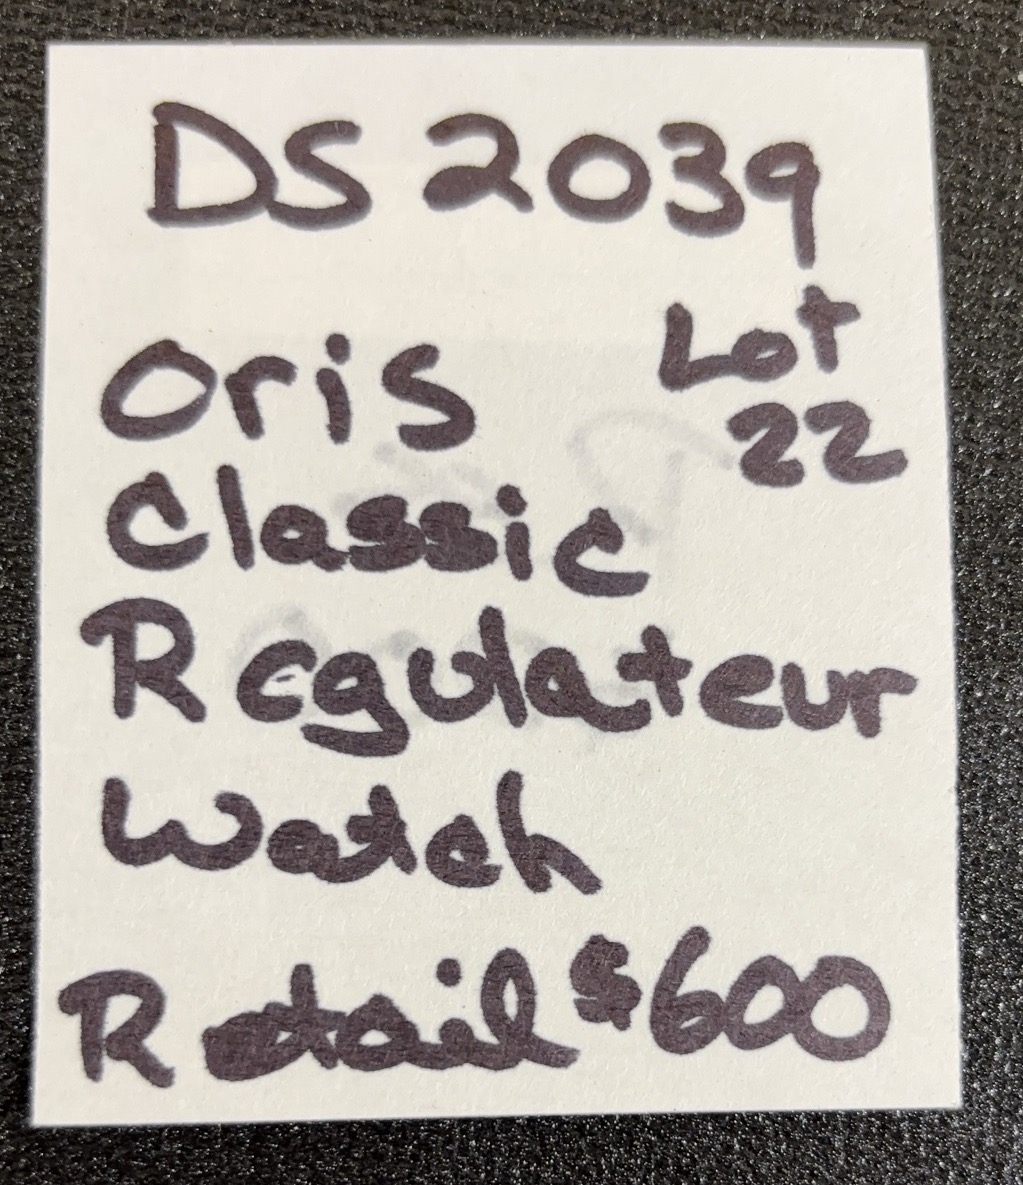 DS 2039
Lot
22
Oris
Classic
Regulateur
Watch
Retail $600